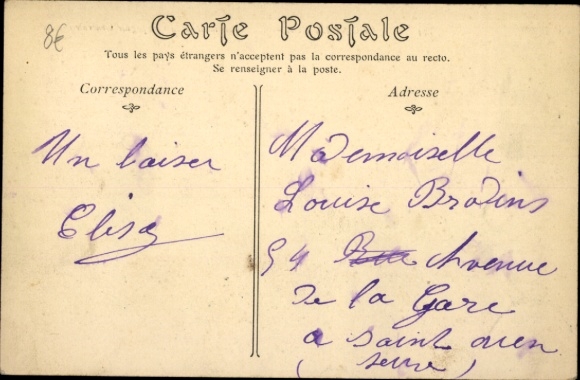 8€
Carte Postale
Tous les pays étrangers n'acceptent pas la correspondance au recto.
Se renseigner à la poste.
Correspondance
Un baiser
Elisa
Adresse
Mademoiselle
Louise Brodins
54 Rue Avenue
de la Gare
a saint ouen
(seine)